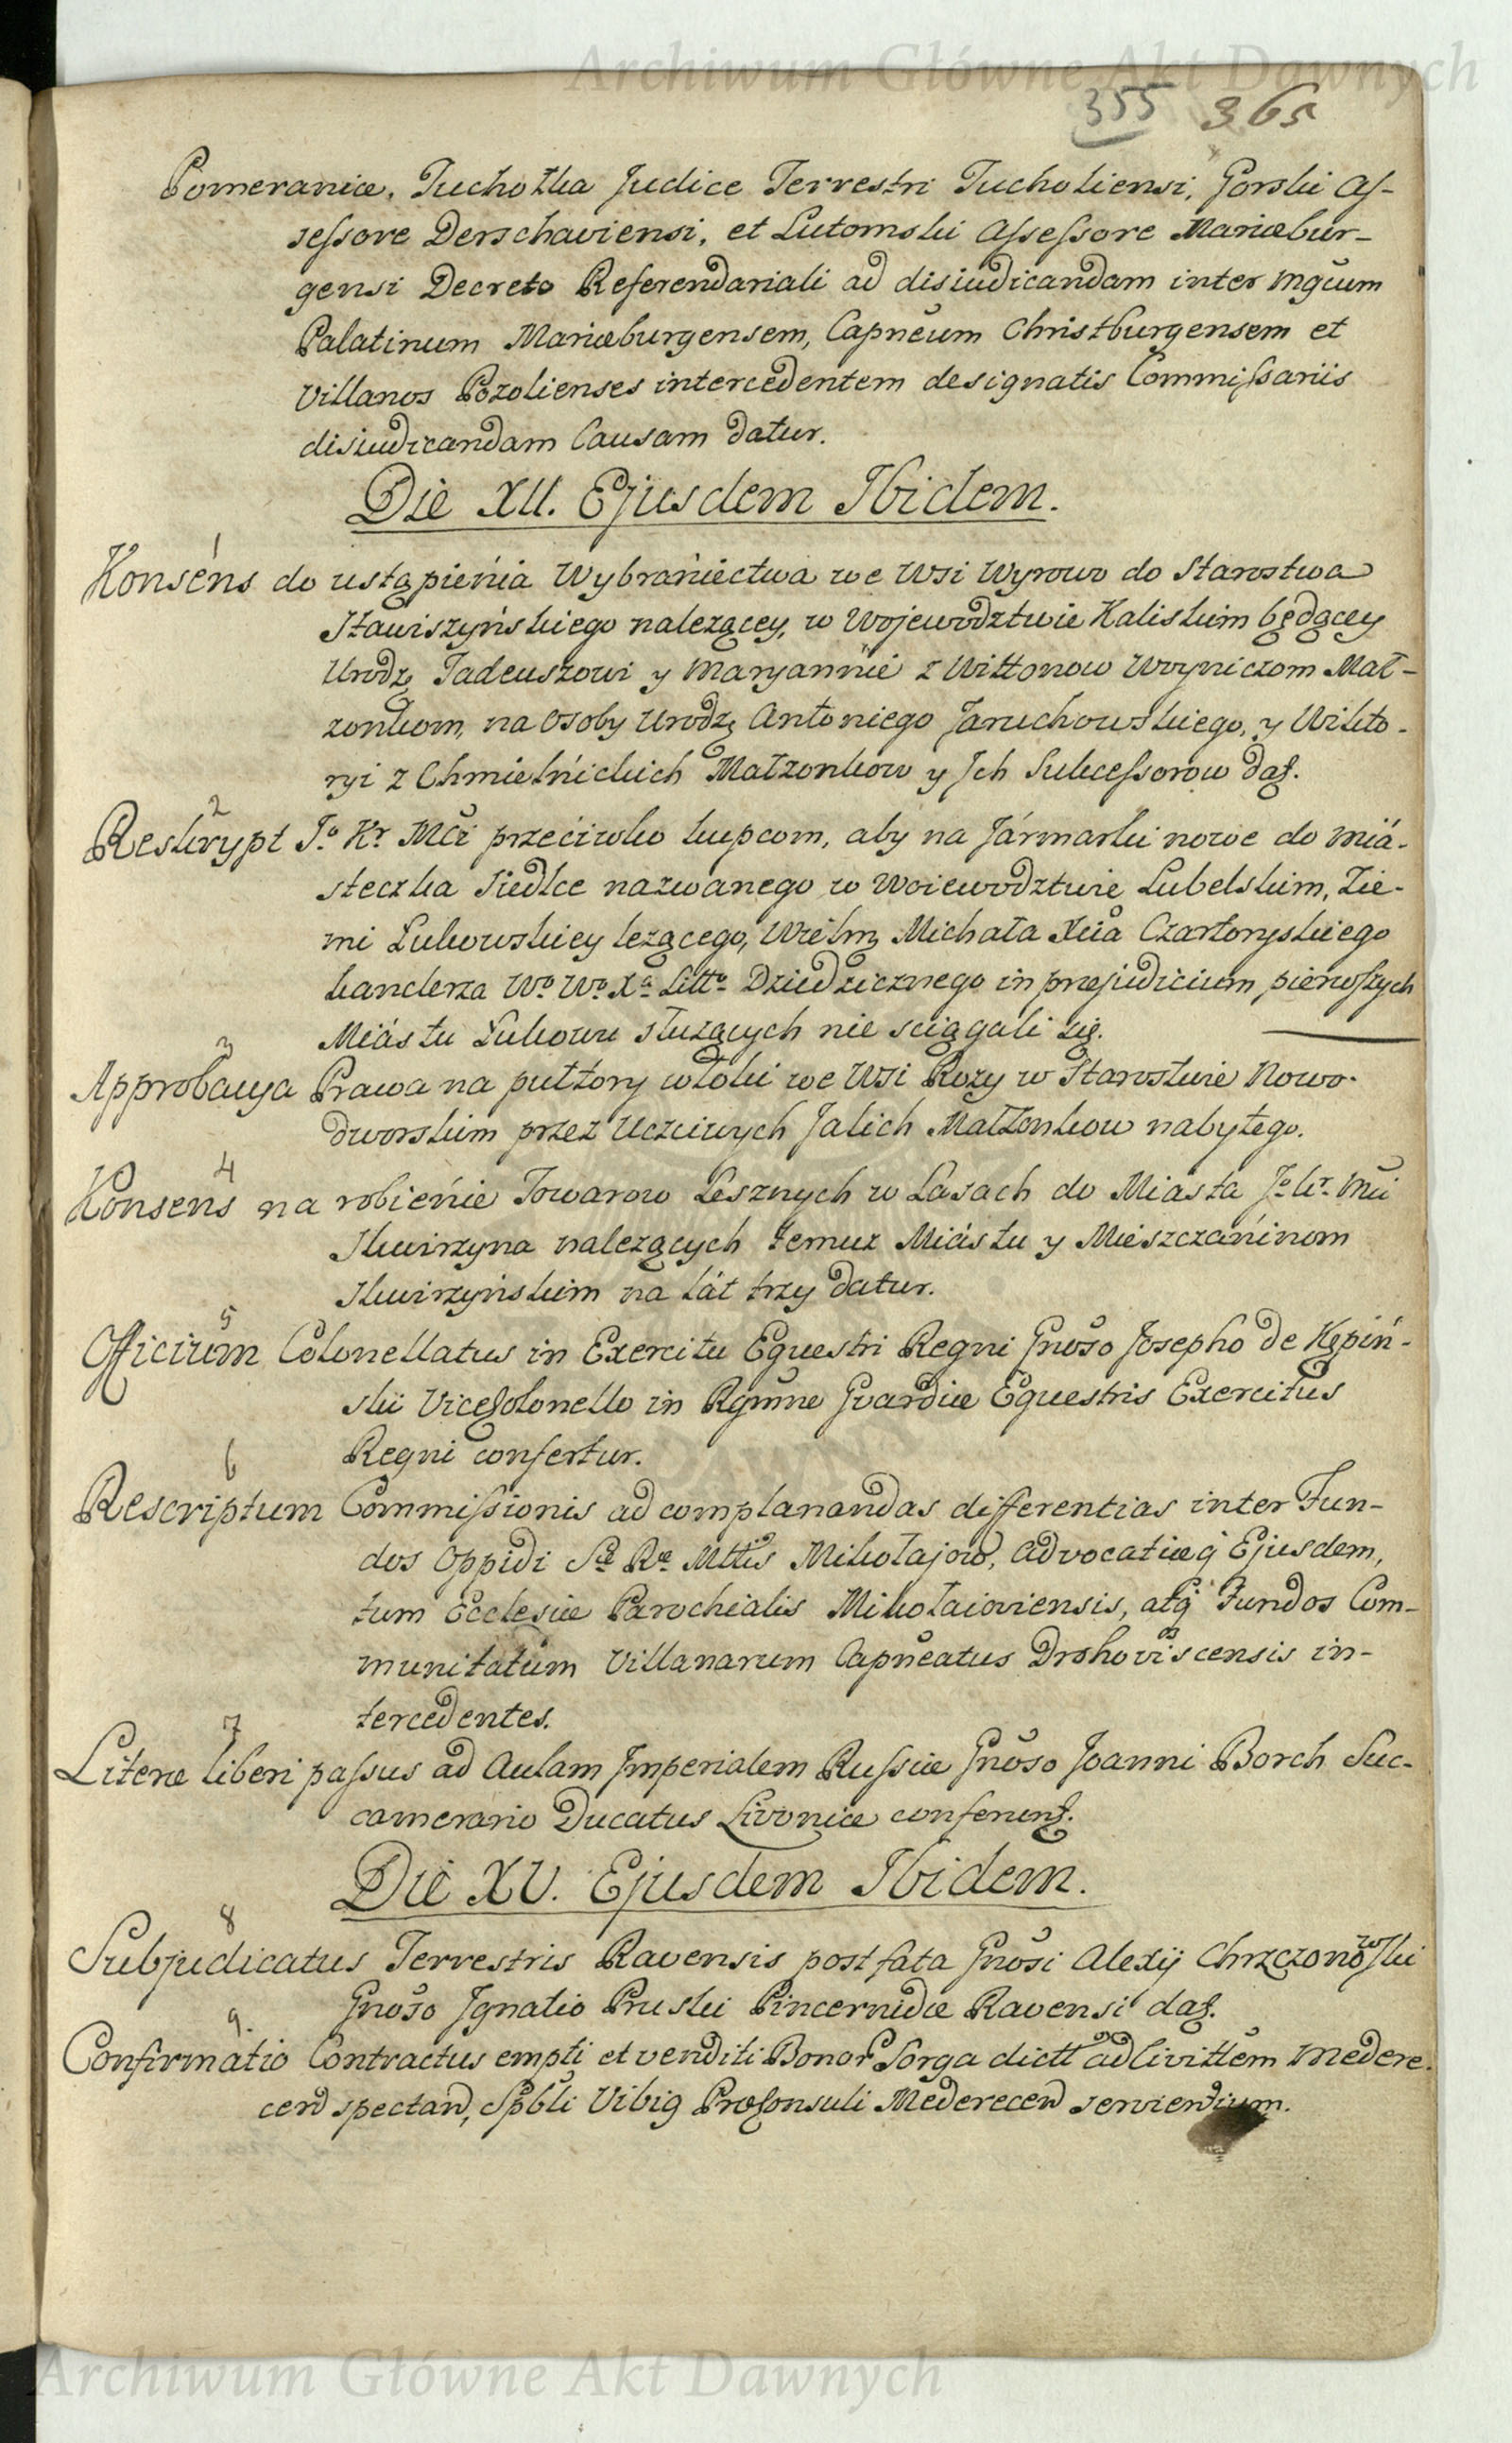 Archiwum Główne Akt Dawnych
355 365
Pomeraniæ, Tuchołka Judice Terrestri Tucholiensi, Gorski As-
sessore Derschaviensi, et Lutomski Assessore Mariæbur-
gensi Decreto Referendariali ad disiudicandam inter Mgcum
Palatinum Mariæburgensem, Capneum Christburgensem et
Villanos Pozolienses intercedentem designatis Commissariis
disiudicandam Causam datur.
Die XII. Ejusdem Ibidem.
1
Konsens do ustąpienia Wybraniectwa we Wsi Wyrowo do Starostwa
Stawiszyńskiego nalezącey, w Wojewodztwie Kaliskim będącey
Urodz Tadeuszowi y Maryannie z Wittonow Woyniczom Mał-
zonkom, na Osoby Urodz Antoniego Jaruchowskiego, y Wikto-
ryi z Chmielnickich Małzonkow y Ich Sukcessorow dat.
2
Reskrypt Jo Kr Mci przeciwko kupcom, aby na Jármarki nowe do miá-
steczka Siedlce nazwanego w Woiewodztwie Lubelskim, Zie-
mi Łukowskiey lezącego, Wielm Michała Xcia Czartoryskiego
kanclerza Wo Wo Xa Litto Dziedzicznego in præjudicium pierwszych
Miástu Łukowu słuzących nie sciągali się.
3
Approbacya Prawa na pułtory włoki we Wsi Rozy w Starostwie Nowo-
dworskim przez Uczciwych Jalich Małzonkow nabytego.
4
Konsens na robienie Towarow Lesznych w Lasach do Miasta Jo kr Mci
Skwirzyna nalezących temuz Miástu y Mieszczaninom
Skwirzyńskim na lát trzy datur.
5
Officium Colonellatus in Exercitu Equestri Regni Gnoso Josepho de Kępiń-
ski ViceColonello in Rgmne Gvardiæ Equestris Exercitus
Regni confertur.
6
Rescriptum Commissionis ad complanandas differentias inter Fun-
dos Oppidi Sæ Ræ Mttis Mikołajow, Advocatiæq Ejusdem,
tum Ecclesiæ Parochialis Mikołaioviensis, atq Fundos Com-
munitatum Villanarum Capneatus Drohoviscensis in-
tercedentes.
7
Literæ liberi passus ad Aulam Imperialem Russiæ Gnoso Joanni Borch Suc-
camerario Ducatus Livoniæ conferunt.
Die XV. Ejusdem Ibidem.
8
Subjudicatus Terrestris Ravensis post fata Gnosi Alexij Chrzczonowski
Gnoso Ignatio Pruski Pincernidæ Ravensi dat.
9.
Confirmatio Contractus empti et venditi Bonor Sorga dictt ad Civittem Medere-
cen spectan, Spbli Vibig ProConsuli Mederecen servientium.
Archiwum Główne Akt Dawnych